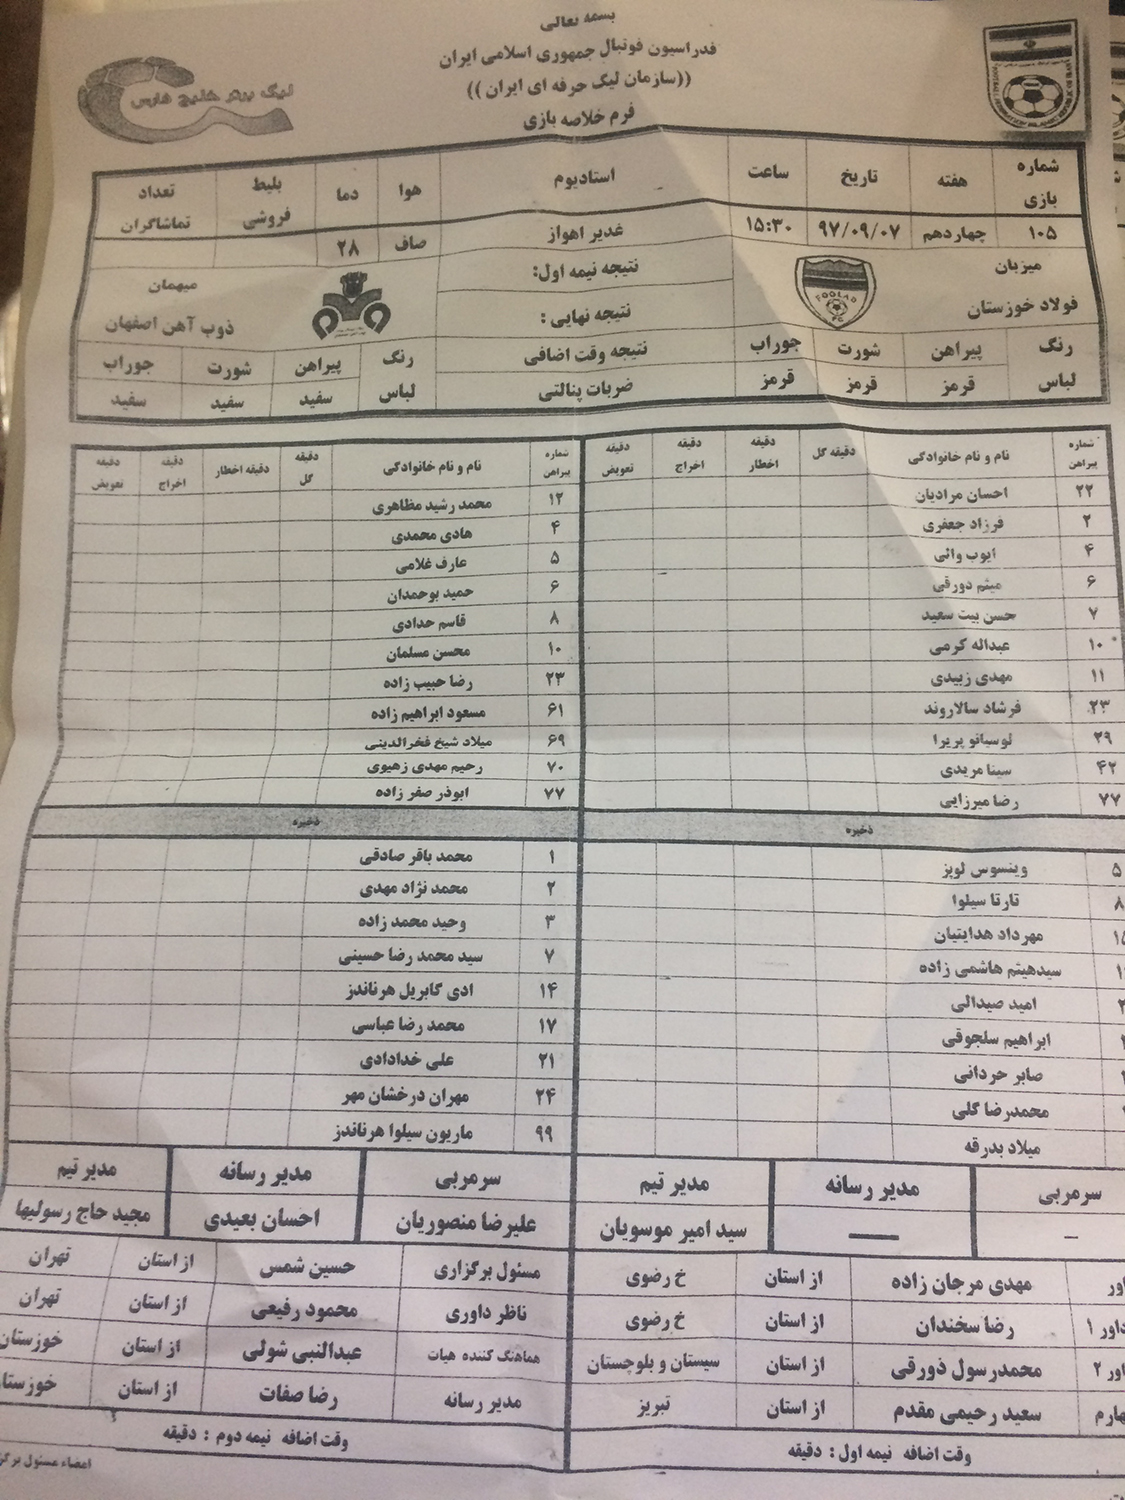 بسمه تعالی
فدراسیون فوتبال جمهوری اسلامی ایران
((سازمان لیگ حرفه ای ایران))
فرم خلاصه بازی
لیگ برتر خلیج فارس
شماره بازی هفته تاریخ ساعت استادیوم هوا دما بلیط فروشی تعداد تماشاگران
۱۰۵ چهاردهم ۹۷/۰۹/۰۷ ۱۵:۳۰ غدیر اهواز صاف ۲۸
میزبان نتیجه نیمه اول: میهمان
فولاد خوزستان FOOLAD FC نتیجه نهایی : ذوب آهن اصفهان
رنگ پیراهن شورت جوراب نتیجه وقت اضافی رنگ پیراهن شورت جوراب
لباس قرمز قرمز قرمز ضربات پنالتی لباس سفید سفید سفید
شماره پیراهن نام و نام خانوادگی دقیقه گل دقیقه اخطار دقیقه اخراج دقیقه تعویض شماره پیراهن نام و نام خانوادگی دقیقه گل دقیقه اخطار دقیقه اخراج دقیقه تعویض
۲۲ احسان مرادیان ۱۲ محمد رشید مظاهری
۲ فرزاد جعفری ۴ هادی محمدی
۴ ایوب والی ۵ عارف غلامی
۶ میثم دورقی ۶ حمید بوحمدان
۷ حسن بیت سعید ۸ قاسم حدادی
۱۰ عبداله کرمی ۱۰ محسن مسلمان
۱۱ مهدی زبیدی ۲۳ رضا حبیب زاده
۲۳ فرشاد سالاروند ۶۱ مسعود ابراهیم زاده
۲۹ لوسیانو پریرا ۶۹ میلاد شیخ فخرالدینی
۴۲ سینا مریدی ۷۰ رحیم مهدی زهیوی
۷۷ رضا میرزایی ۷۷ ابوذر صفر زاده
ذخیره ذخیره
۵ وینسوس لوپز ۱ محمد باقر صادقی
۸ تارتا سیلوا ۲ محمد نژاد مهدی
مهرداد هدایتیان ۳ وحید محمد زاده
سیدهیثم هاشمی زاده ۷ سید محمد رضا حسینی
امید صیدالی ۱۴ ادی گابریل هرناندز
ابراهیم سلجوقی ۱۷ محمد رضا عباسی
صابر حردانی ۲۱ علی خدادادی
محمدرضا گلی ۲۴ مهران درخشان مهر
میلاد بدرقه ۹۹ ماریون سیلوا هرناندز
سرمربی مدیر رسانه مدیر تیم سرمربی مدیر رسانه مدیر تیم
— — سید امیر موسویان علیرضا منصوریان احسان بعیدی مجید حاج رسولیها
مهدی مرجان زاده از استان خ رضوی مسئول برگزاری حسین شمس از استان تهران
رضا سخندان از استان خ رضوی ناظر داوری محمود رفیعی از استان تهران
محمدرسول ذورقی از استان سیستان و بلوچستان هماهنگ کننده هیات عبدالنبی شولی از استان خوزستان
سعید رحیمی مقدم از استان تبریز مدیر رسانه رضا صفات از استان
وقت اضافه نیمه اول : دقیقه وقت اضافه نیمه دوم : دقیقه
امضاء مسئول